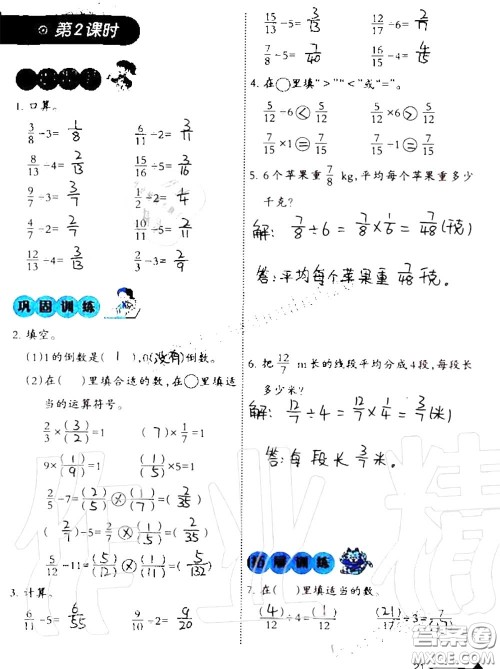 第2课时
1. 口算。
3/8÷3= 1/8　6/11÷2= 3/11
8/13÷4= 2/13　15/16÷5= 3/16
9/7÷3= 3/7　1/2÷2= 1/4
2/7
12/13÷4= 3/13　2/3÷3= 2/9
巩固训练
2. 填空。
(1)1的倒数是( 1 ),0(没有)倒数。
(2)在( )里填合适的数,在○里填适
当的运算符号。
2/3×(3)/(2)=1　(7)×1/7=1
9×(1)/(9)=1　(1)/(5)×5=1
2/5÷7=(2)/(5)×(1)/(7)=2/35
(2/7)÷5=(2)/(7)×(1)/(5)=2/35
5/12÷11=(5)/(12)×(1)/(11)=5/132
3. 计算。
6/11÷5= 6/55　9/10÷2= 9/20
15/13÷5= 3/13　6/7÷3= 2/7
7/8÷5= 7/40　÷4= 4/15
4. 在○里填“>”“<”或“=”。
5/12÷6<5/12　5/12×6>5/12
7/15×1=7/15　7/15÷1=7/15
5. 6个苹果重7/8 kg,平均每个苹果重多少
千克?
解: 7/8÷6=7/8×1/6=7/48(千克)
答:平均每个苹果重7/48千克。
6. 把12/7 m长的线段平均分成4段,每段长
多少米?
解: 12/7÷4=12/7×1/4=3/7(米)
答:每段长3/7米。
拓展训练
7. 在( )里填适当的数。
(4)/12÷4=(1)/12　÷3=7/
作业精
答案圈
MXQE.COM